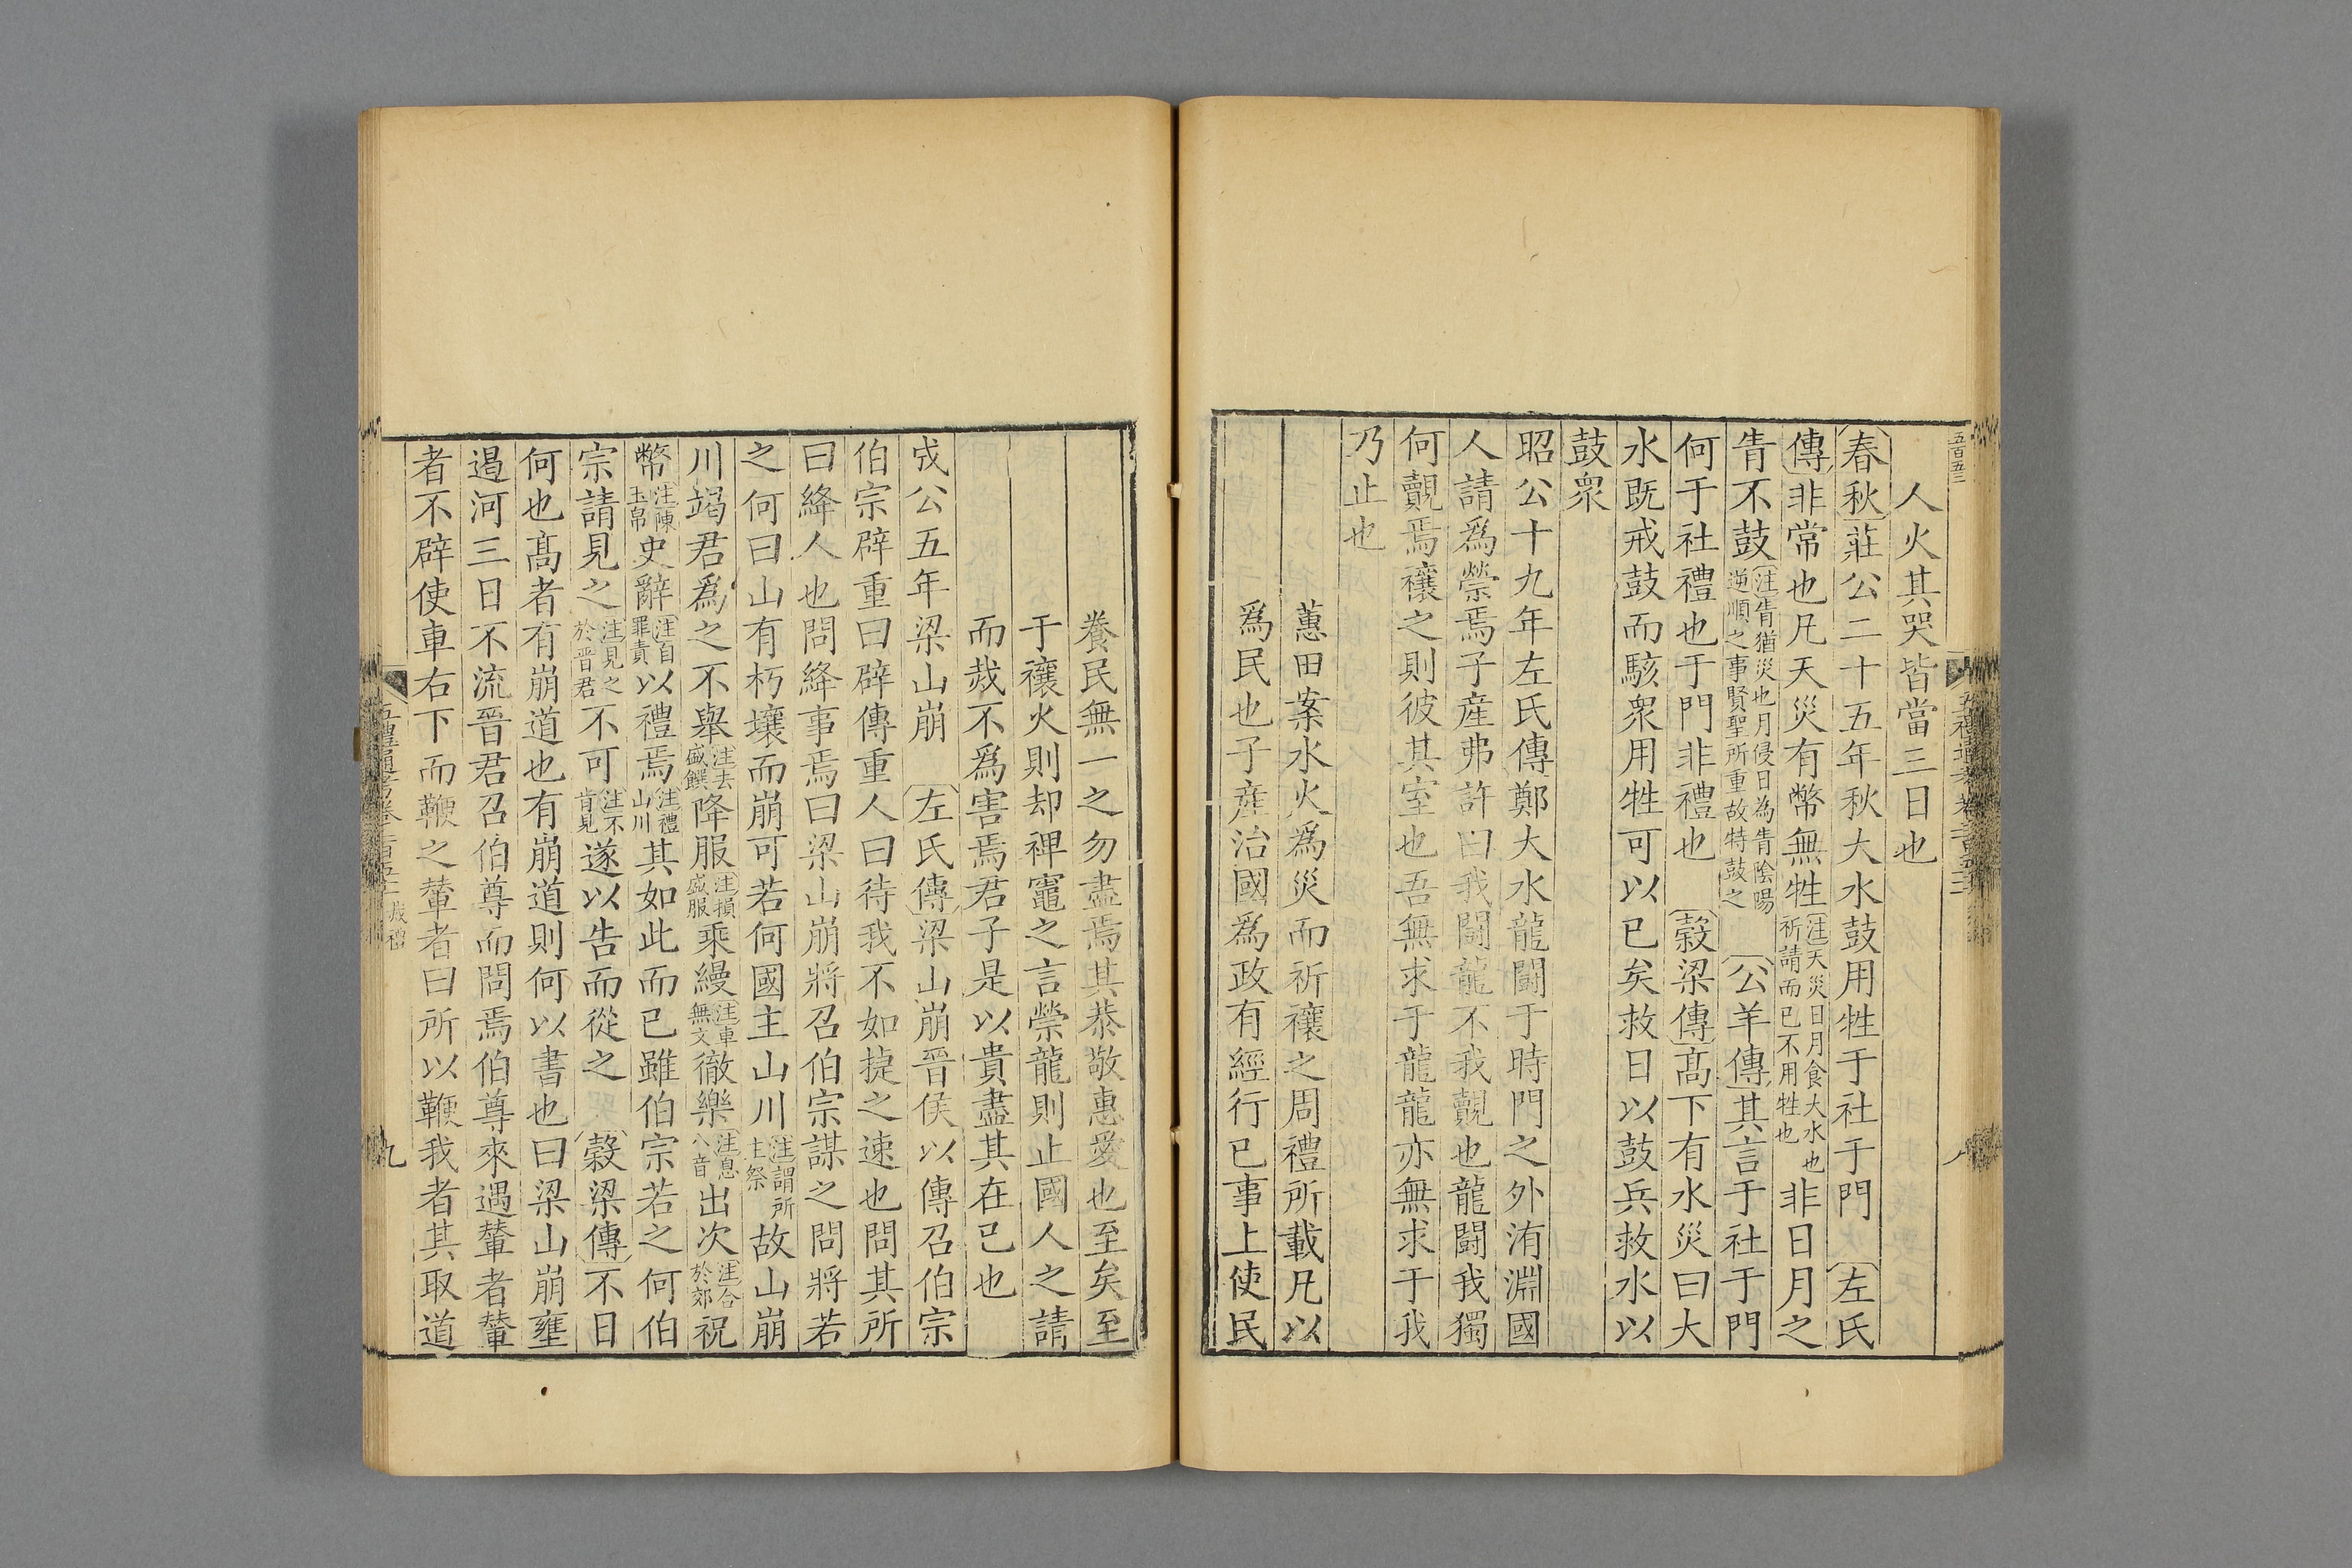 五百五三
人火其哭皆當三日也
春秋莊公二十五年秋大水鼓用牲于社于門　左氏
傳非常也凡天災有幣無牲注天災日月食大水也祈請而已不用牲也非日月之
眚不鼓注眚猶災也月侵日為眚陰陽逆順之事賢聖所重故特鼓之　公羊傳其言于社于門
何于社禮也于門非禮也　穀梁傳髙下有水災曰大
水既戒鼓而駭衆用牲可以已矣救日以鼓兵救水以
鼓衆
昭公十九年左氏傳鄭大水龍鬭于時門之外洧淵國
人請爲禜焉子産弗許曰我鬭龍不我覿也龍鬭我獨
何覿焉禳之則彼其室也吾無求于龍龍亦無求于我
乃止也
蕙田案水火爲災而祈禳之周禮所載凡以
爲民也子産治國爲政有經行已事上使民
養民無一之勿盡焉其恭敬惠愛也至矣至
于禳火則却裨竈之言禜龍則止國人之請
而烖不爲害焉君子是以貴盡其在已也
成公五年梁山崩　左氏傳梁山崩晉侯以傳召伯宗
伯宗辟重曰辟傳重人曰待我不如捷之速也問其所
曰絳人也問絳事焉曰梁山崩將召伯宗謀之問將若
之何曰山有朽壤而崩可若何國主山川注謂所主祭故山崩
川竭君爲之不舉注去盛饌降服注損盛服乘縵注車無文徹樂注息八音出次注舍於郊祝
幣注陳玉帛史辭注自罪責以禮焉注禮山川其如此而已雖伯宗若之何伯
宗請見之注見之於晉君不可注不肯見遂以告而從之　穀梁傳不日
何也髙者有崩道也有崩道則何以書也曰梁山崩壅
遏河三日不流晉君召伯尊而問焉伯尊來遇輦者輦
者不辟使車右下而鞭之輦者曰所以鞭我者其取道
五禮通考卷二百五十　烖禮
九